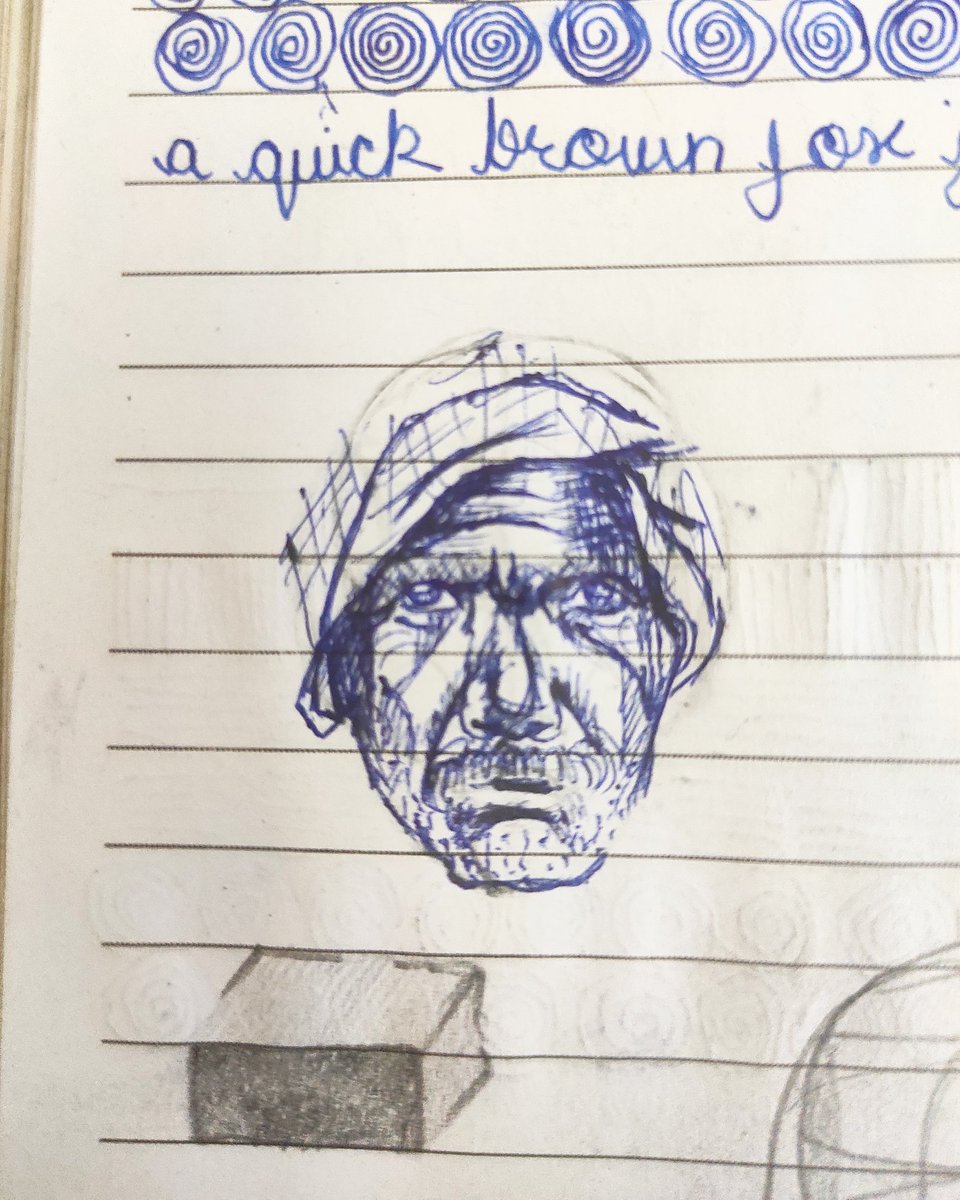 a quick brown fox j